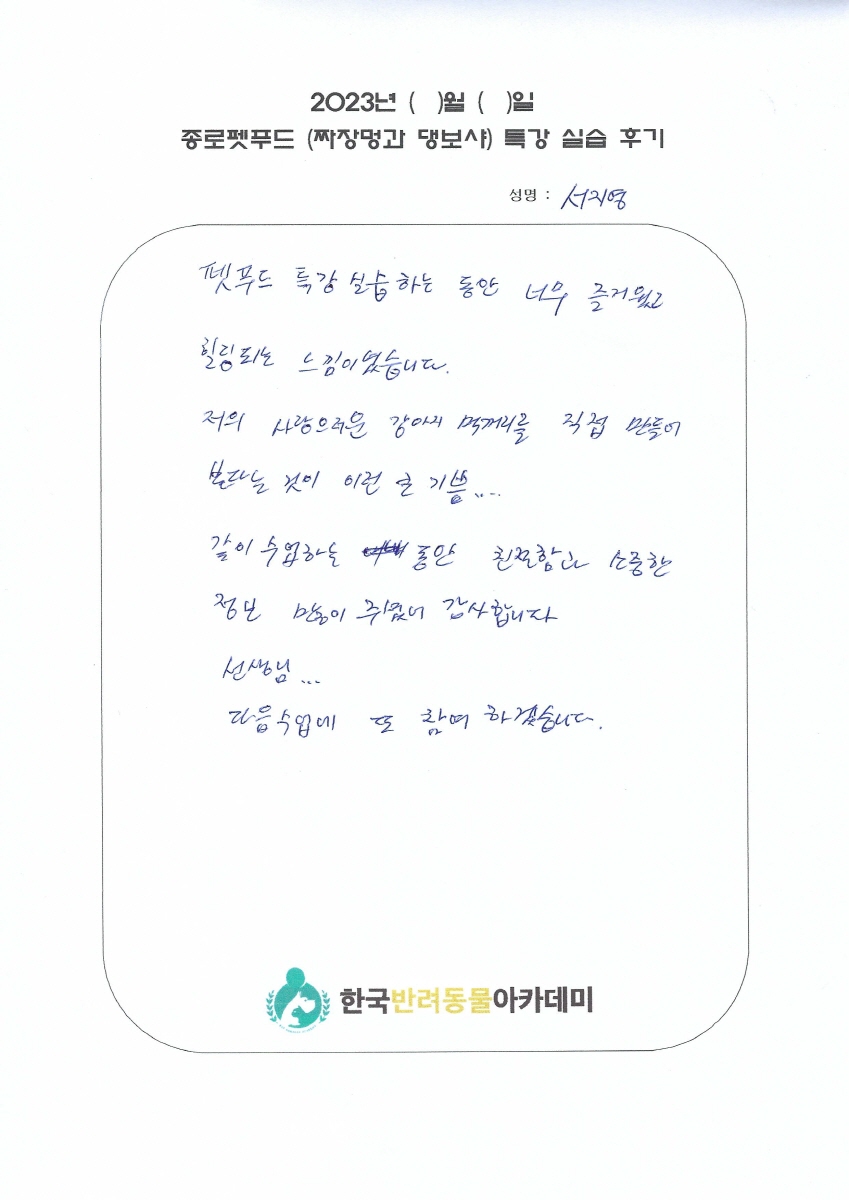 2023년 (  )월 (  )일
종로펫푸드 (짜장멍과 댕보샤) 특강 실습 후기
성명 : 서지영
펫푸드 특강 실습하는 동안 너무 즐거웠고
힐링되는 느낌이였습니다.
저의 사랑으러운 강아지 먹꺼리를 직접 만들어
본다는 것이 이런 큰 기쁨....
같이 수업하는 동안 친절함과 소중한
정보 많이 주셨너 감사합니다
선생님...
다음수업에 또 참여 하겠습니다.
한국반려동물아카데미